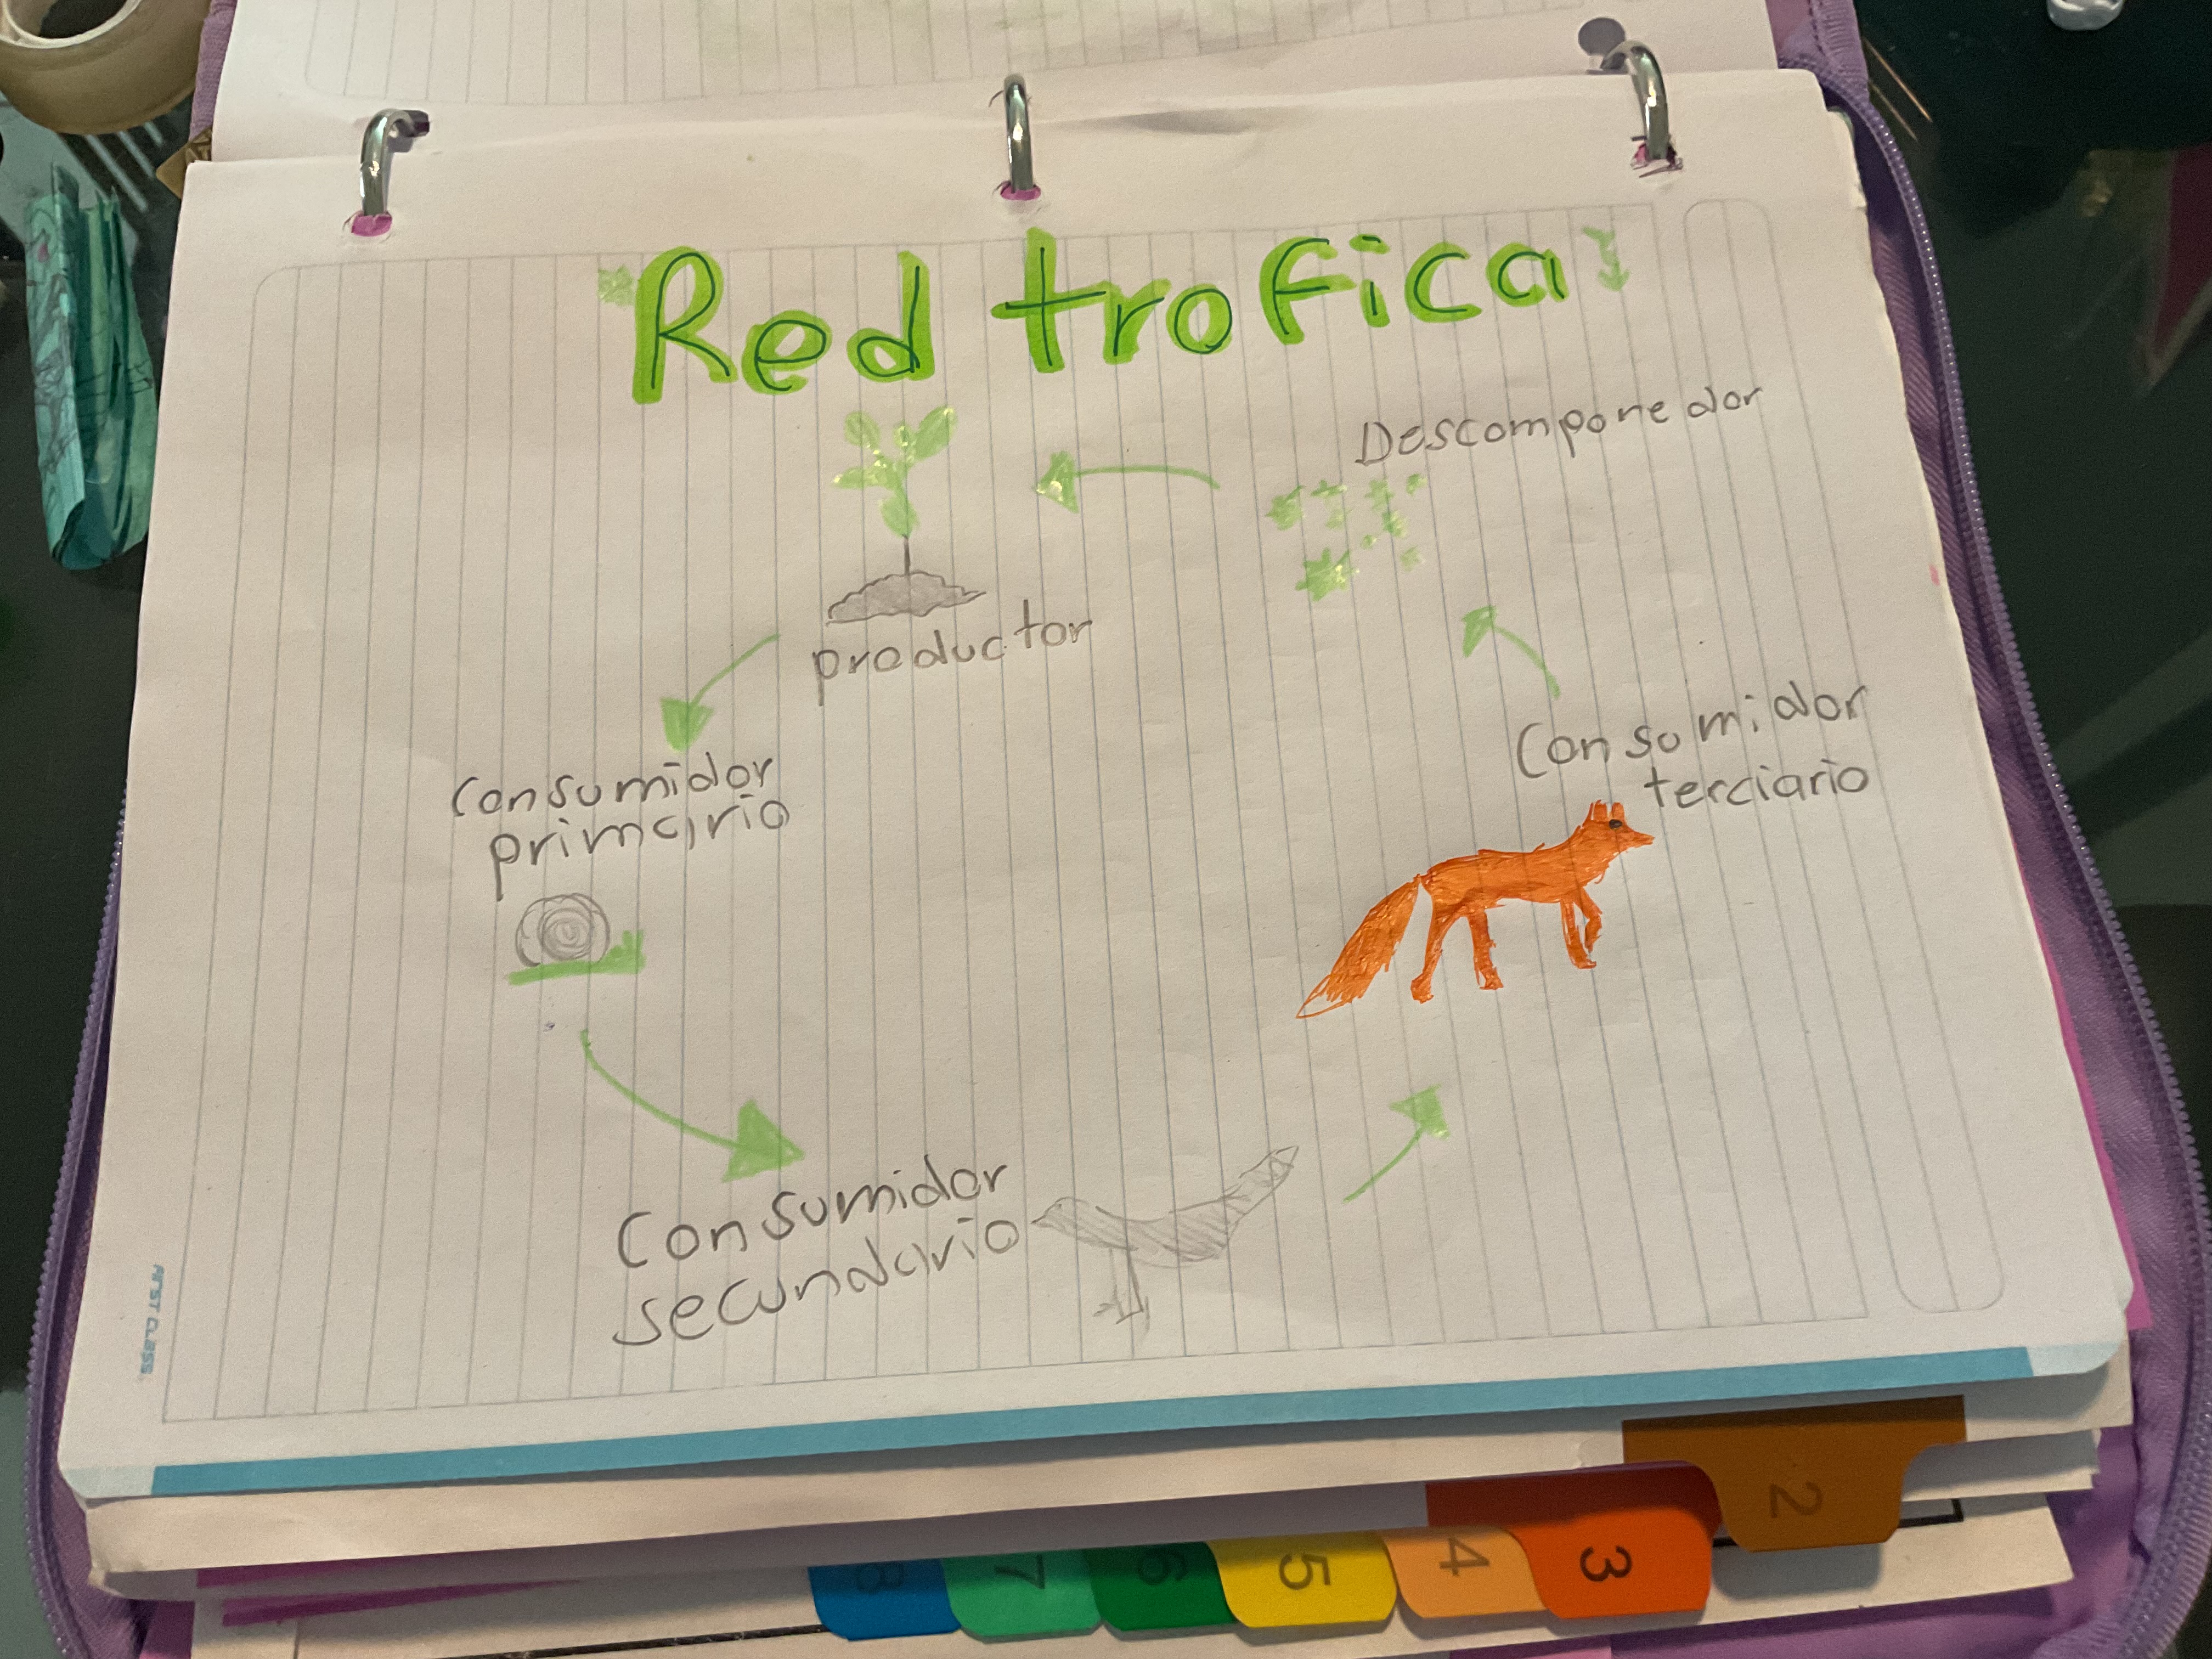 Red trofica
Descomponedor
productor
Consumidor
primario
Consumidor
terciario
Consumidor
secundario
FIRST CLASS
2
3
4
5
6
7
8